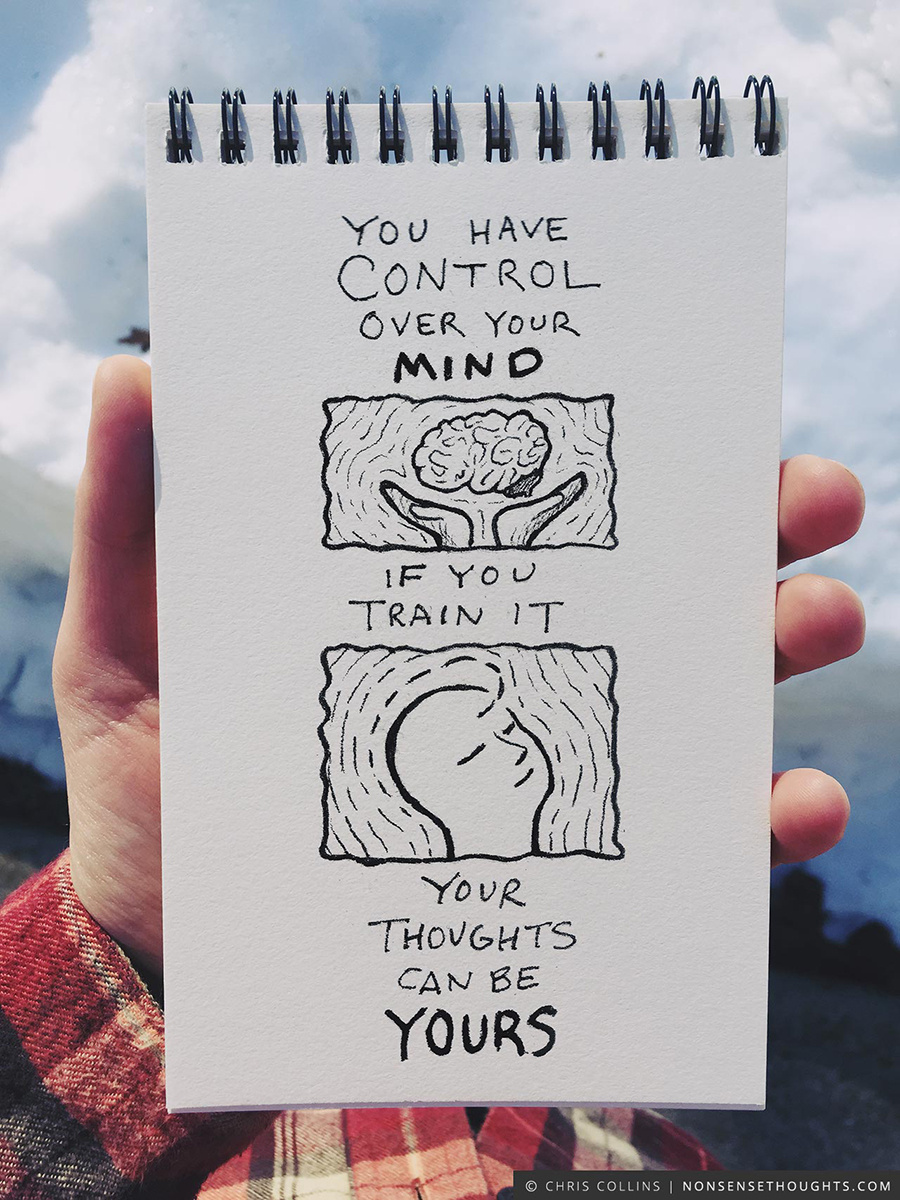 YOU HAVE
CONTROL
OVER YOUR
MIND
IF YOU
TRAIN IT
YOUR
THOUGHTS
CAN BE
YOURS
© CHRIS COLLINS | NONSENSETHOUGHTS.COM